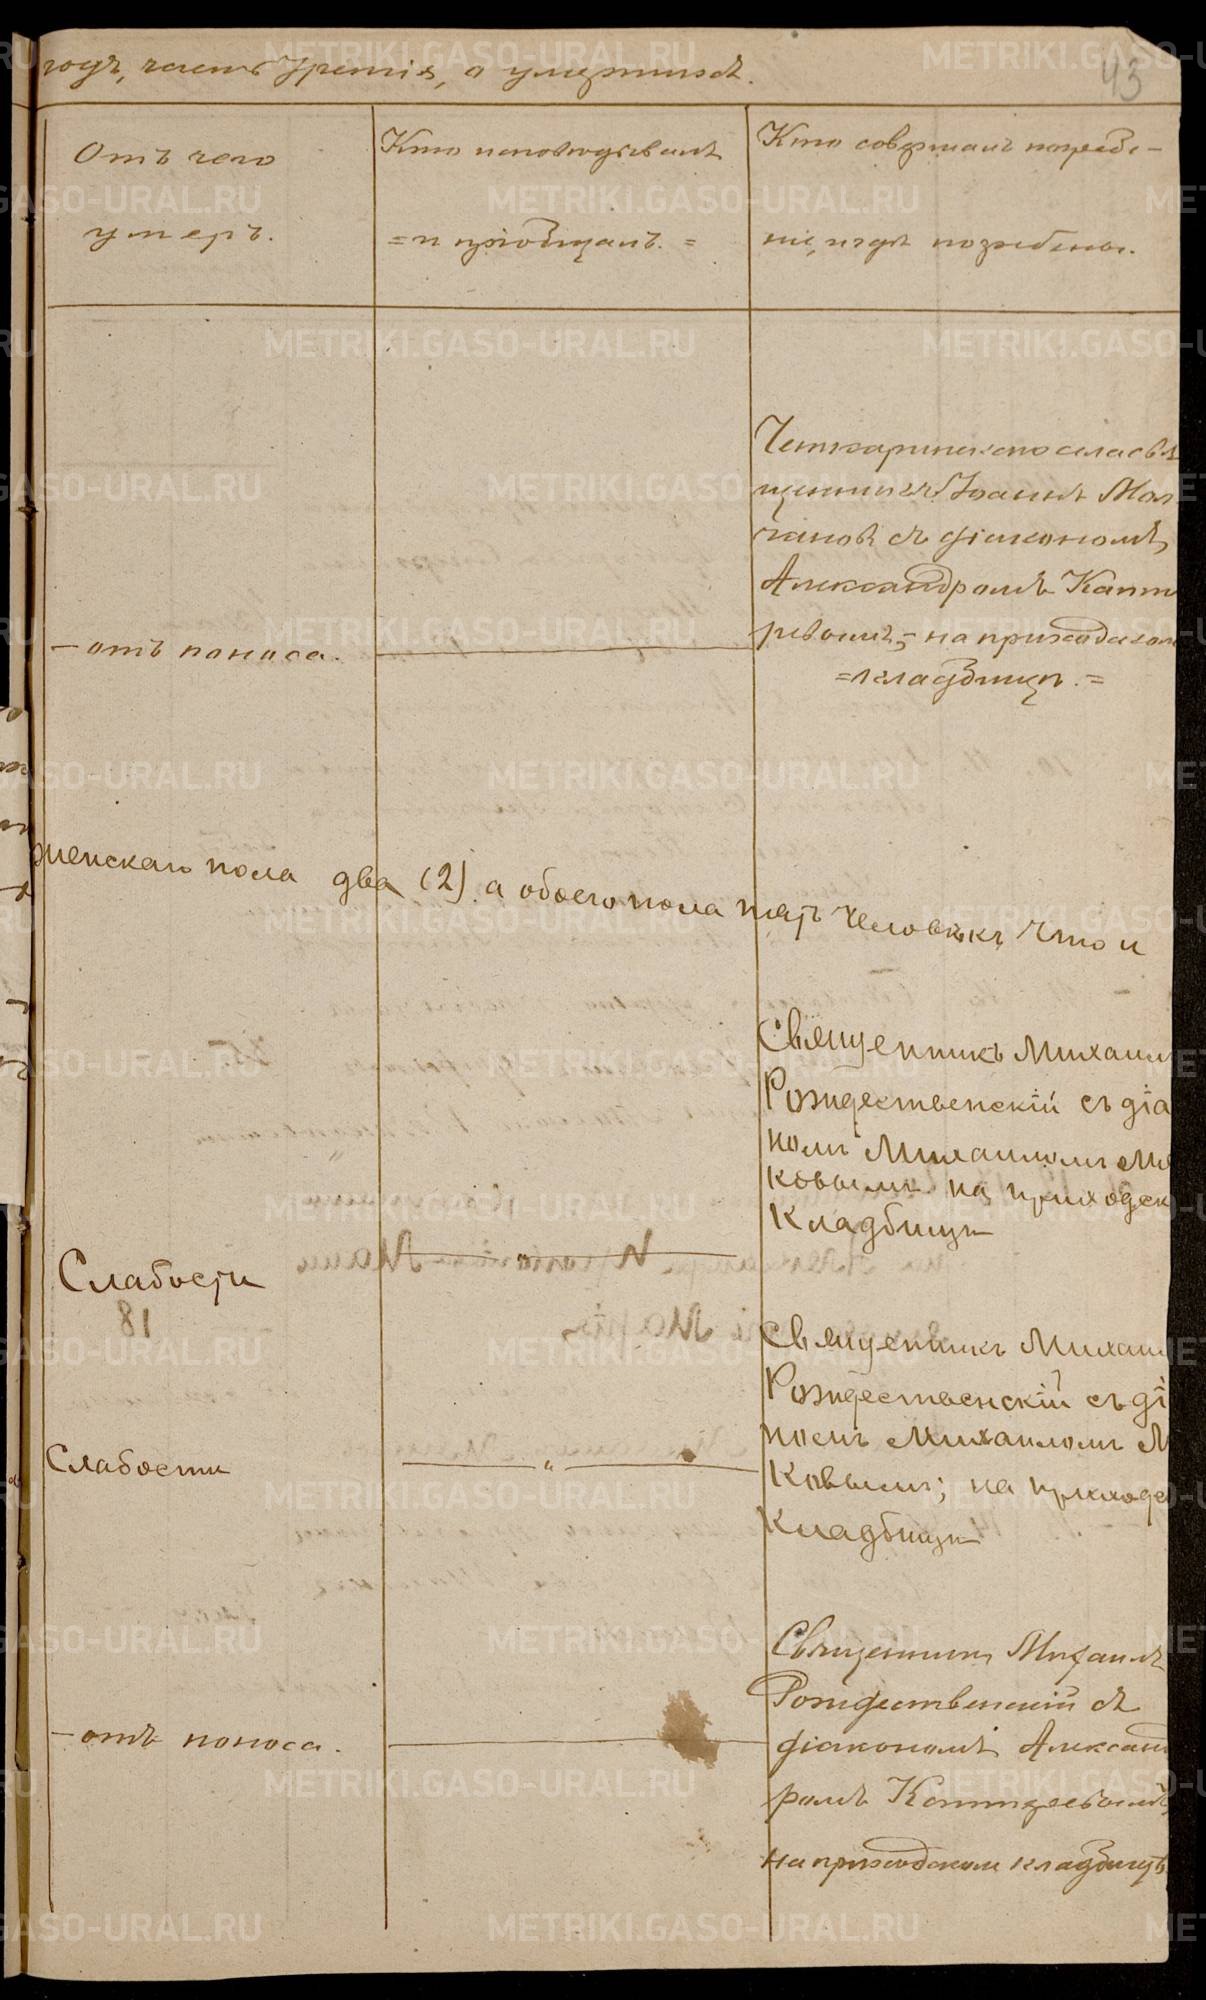 годъ, часть третія, о умершихъ.
43
Отъ чего
умеръ.
Кто исповѣдывалъ
= и пріобщалъ. =
Кто совершалъ погребе-
ніе, и гдѣ погребены.
Четкаринскаго села свя
щенникъ Іоаннъ Мол
чановъ съ діакономъ
Александромъ Капт
ревымъ, - на приходском
= кладбищѣ. =
- отъ поноса.
женскаго пола два (2) а обоего пола пять человѣкъ, Что и
Священникъ Михаил
Рождественскій съ діа
номъ Михаиломъ Мя
ковымъ на приходск
Кладбищѣ
Слабости
Священникъ Михаил
Рождественскій съ ді
номъ Михаиломъ М
ковымъ; на приходс
Кладбищѣ
Слабости
Священникъ Михаилъ
Рождественскій съ
діакономъ Александ
ромъ Каптеревымъ,
на приходскомъ кладбищѣ
- отъ поноса.
METRIKI.GASO-URAL.RU